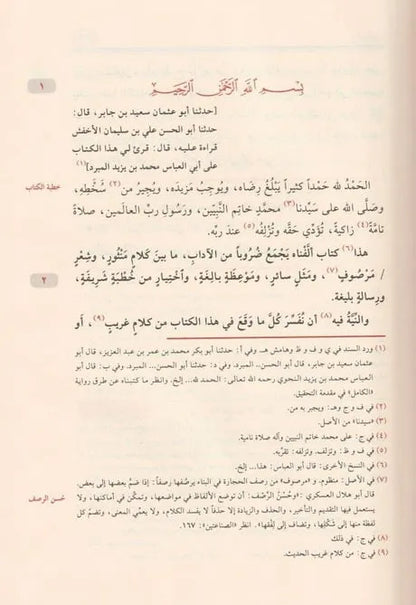 ١
بِسْمِ اللَّهِ الرَّحْمَٰنِ الرَّحِيمِ
[حدثنا أبو عثمان سعيد بن جابر، قال:
حدثنا أبو الحسن علي بن سليمان الأخفش
قراءة عليه، قال: قرئ لي هذا الكتاب
على أبي العباس محمد بن يزيد المبرد](١)
خطبة الكتاب
الحَمْدُ لله حَمْداً كثيراً يَبْلُغُ رِضَاه، ويُوجِبُ مَزِيدَه، ويُجِيرُ من(٢) سَخَطِه،
وصَلَّى الله على سَيِّدنا(٣) محمَّدٍ خاتِمِ النَّبِيِّين، ورسولِ ربِّ العالمين، صلاةً
تامَّةً(٤) زاكيةً، تُؤَدِّي حَقَّه وتُزْلِفُه(٥) عندَ ربِّه.
هذا(٦) كتاب أَلَّفْناه يَجْمَعُ ضُرُوباً من الآدابِ، ما بينَ كلامٍ مَنْثُورٍ، وشِعْرٍ
/ مَرْصُوفٍ(٧)، ومَثَلٍ سائرٍ، ومَوْعِظَةٍ بالِغَةٍ، واخْتِيارٍ من خُطْبَةٍ شَرِيفَةٍ،
٢
ورِسالةٍ بليغة.
والنِّيَّةُ فيه(٨) أن نُفَسِّرَ كُلَّ ما وَقَعَ في هذا الكتابِ من كلامٍ غريبٍ(٩)، أو
(١) ورد السند في ي و ف و ظ وهامش هـ. وفي أ: حدثنا أبو بكر محمد بن عمر بن عبد العزيز، قال أبو
عثمان سعيد بن جابر، قال أبو الحسن.. المبرد. وفي د: حدثنا أبو الحسن... المبرد. وفي ب: قال أبو
العباس محمد بن يزيد النحوي رحمه الله تعالى: الحمد لله... إلخ. وانظر ما كتبناه عن طرق رواية
«الكامل» في مقدمة التحقيق.
(٢) في ف و ج وهـ: ويجير به من.
(٣) «سيدنا» من الأصل.
(٤) في ج: على محمد خاتم النبيين وآله صلاة نامية.
(٥) في ف و ظ: وتزلف. وتزلفه: تقرّبه.
(٦) في النسخ الأخرى: قال أبو العباس: هذا... إلخ.
(٧) في الأصل: منظوم. و «مرصوف» من رصف الحجارة في البناء يرصفها رصفاً: إذا ضمَّ بعضها إلى بعض.
حُسن الرصف
قال أبو هلال العسكري: «وحُسْنُ الرَّصْف: أن توضع الألفاظ في مواضعها، وتمكّن في أماكنها، ولا
يستعمل فيها التقديم والتأخير، والحذف والزيادة إلا حذفاً لا يفسد الكلام، ولا يعمّي المعنى، وتضمّ كل
لفظة منها إلى شكلها، وتضاف إلى لِفْقها». انظر «الصناعتين»: ١٦٧.
(٨) في ج: في ذلك
(٩) في ج: من كلام غريب الحديث.